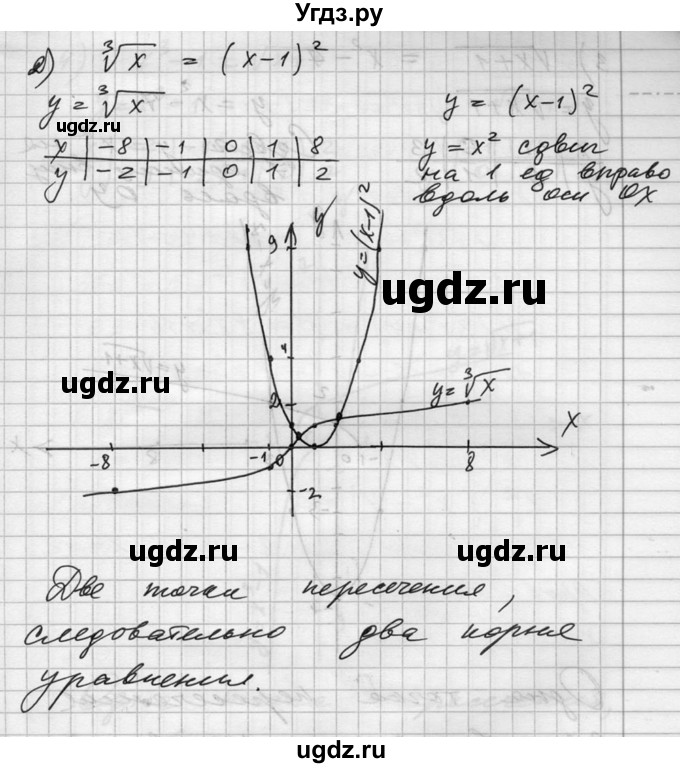 Угдз.ру
д) ∛x = (x-1)²
y = ∛x
y = (x-1)²
ugdz.ru
x | -8 | -1 | 0 | 1 | 8
y | -2 | -1 | 0 | 1 | 2
y = x² сдвиг
на 1 ед вправо
вдоль оси OX
y
9
y=(x-1)²
ugdz.ru
4
ugdz.ru
y=∛x
2
x
-8
-1
0
8
-2
ugdz.ru
ugdz.ru
Две точки пересечения,
следовательно два корня
уравнения.
ugdz.ru